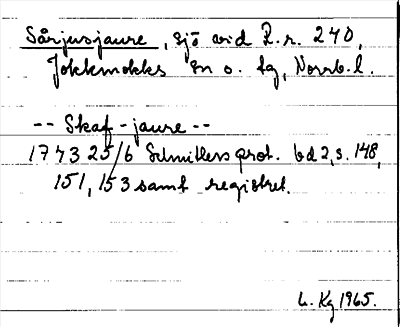 Sårjusjaure, sjö vid R.r. 240,
Jokkmokks sn o. tg, Norrb.l.
-- Skaf-jaure --
1743 25/6 Schnitlers prot. bd 2, s. 148,
151, 153 samt registret.
L. Kg 1965.